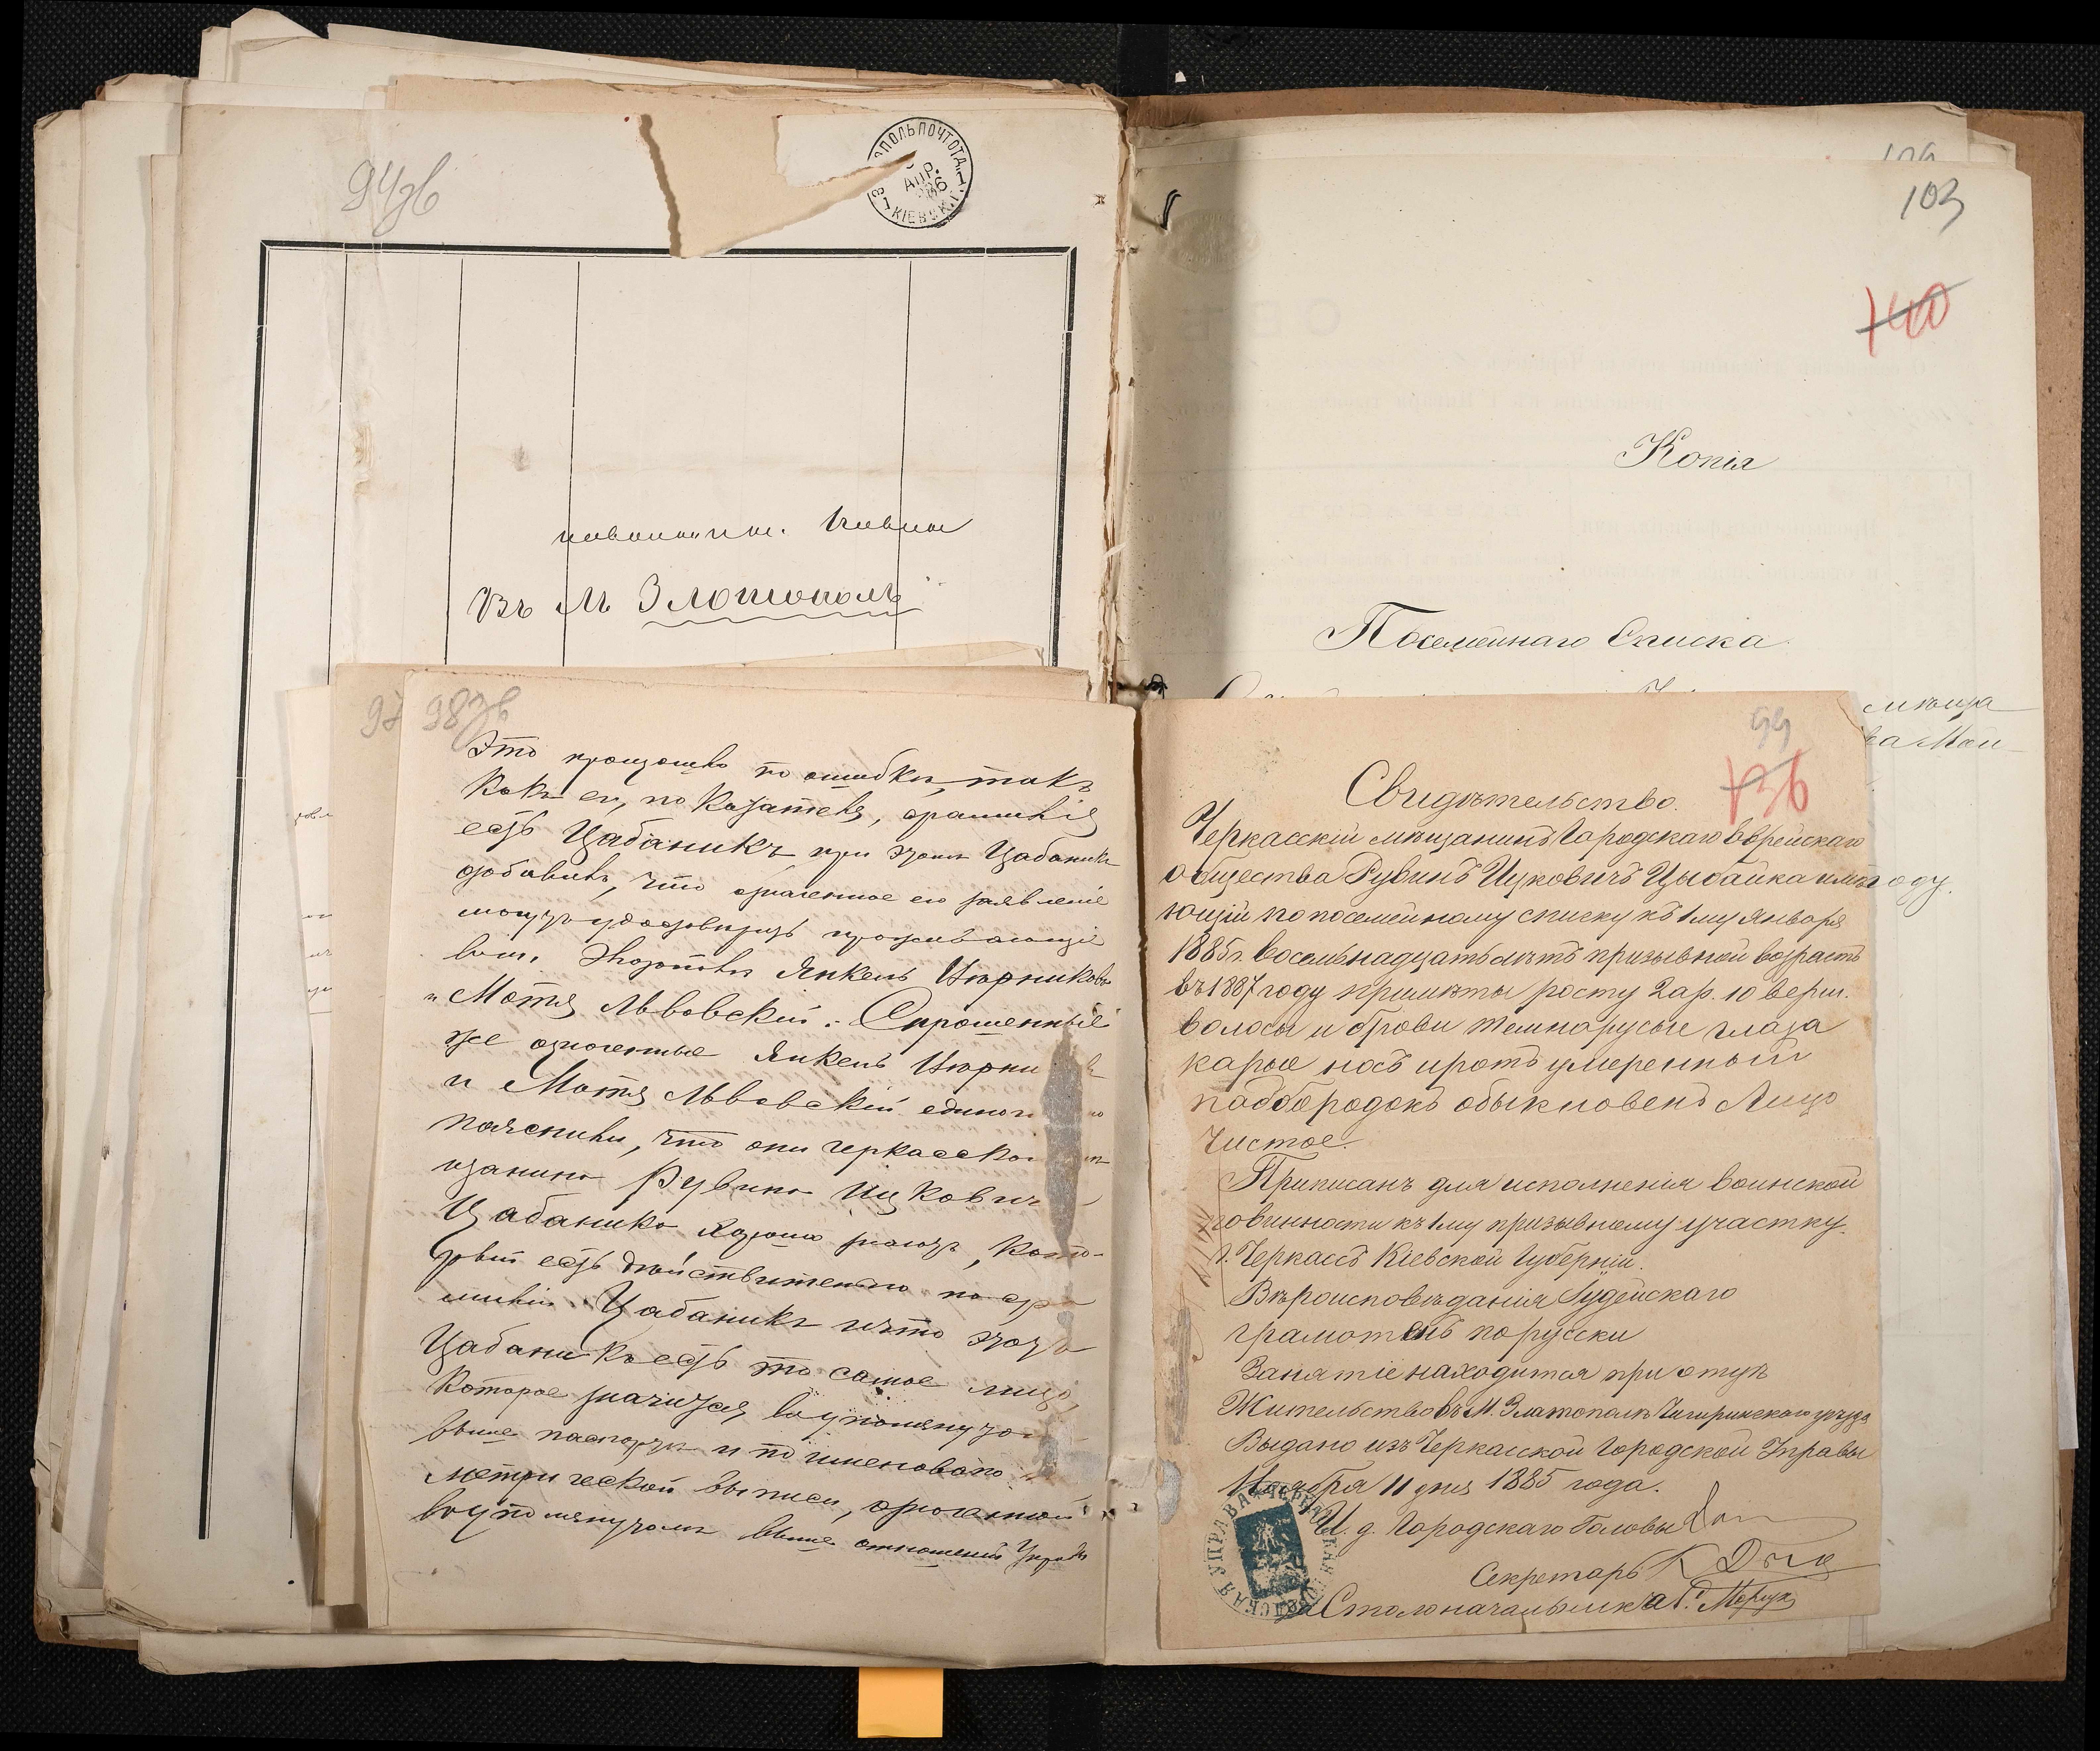 94об
ЗЛАТОПОЛЬ ПОЧТ. ОТД.
АПР.
КІЕВСК. Г.
Въ М Злотополь
97
98об
Это произошло по ошибкѣ, такъ
какъ его, по
есть Цабаникъ при этомъ Цабаникъ
добавилъ, что означенное его заявленіе
могутъ удостовѣрить проживающіе
Янкель Цюрниковъ
и Мотя Львовскій. Спрошенные
же означенные Янкель Цюрни
и Мотя Львовскій единог
пояснили, что они черкасска
щанина Рувина Ицкович
Цабаника хорошо знаютъ, кото-
рый есть дѣйствительно по
миліи Цабаникъ и что этотъ
Цабаникъ есть то самое лицо,
которое значится въ упомянуто
выше паспортѣ и поименовано
метрической выписи,
въ упомянутомъ выше отношеніи Управы
103
140
Копія
Посемейнаго Списка
мѣща
99
136
Свидѣтельство.
Черкасскій мѣщанинъ Городскаго Еврейскаго
общества Рувинъ Ицковичъ Цыбайка имѣ
оду.
ющій по посемейному списку къ 1му Января
1885 г. восемьнадцать лѣтъ призывной возрастъ
въ 1887 году примѣты росту 2 ар. 10 верш.
волосы и брови темнорусые глаза
карые носъ и ротъ умеренный
падбородокъ обыкновенъ Лицо
чистое.
Приписанъ для исполненія воинской
повинности къ 1му призывному участку
г. Черкассъ Кіевской Губерніи.
Вѣроисповѣданія Іудейскаго
грамотенъ порусски
Занятіе находится при отцѣ
Жительство въ М. Златополѣ Чигиринскаго уѣзда
Выдано изъ Черкасской Городской Управы
Ноября 11 дня 1885 года.
И. д. Городскаго Головы
Секретарь
За Столоначальника